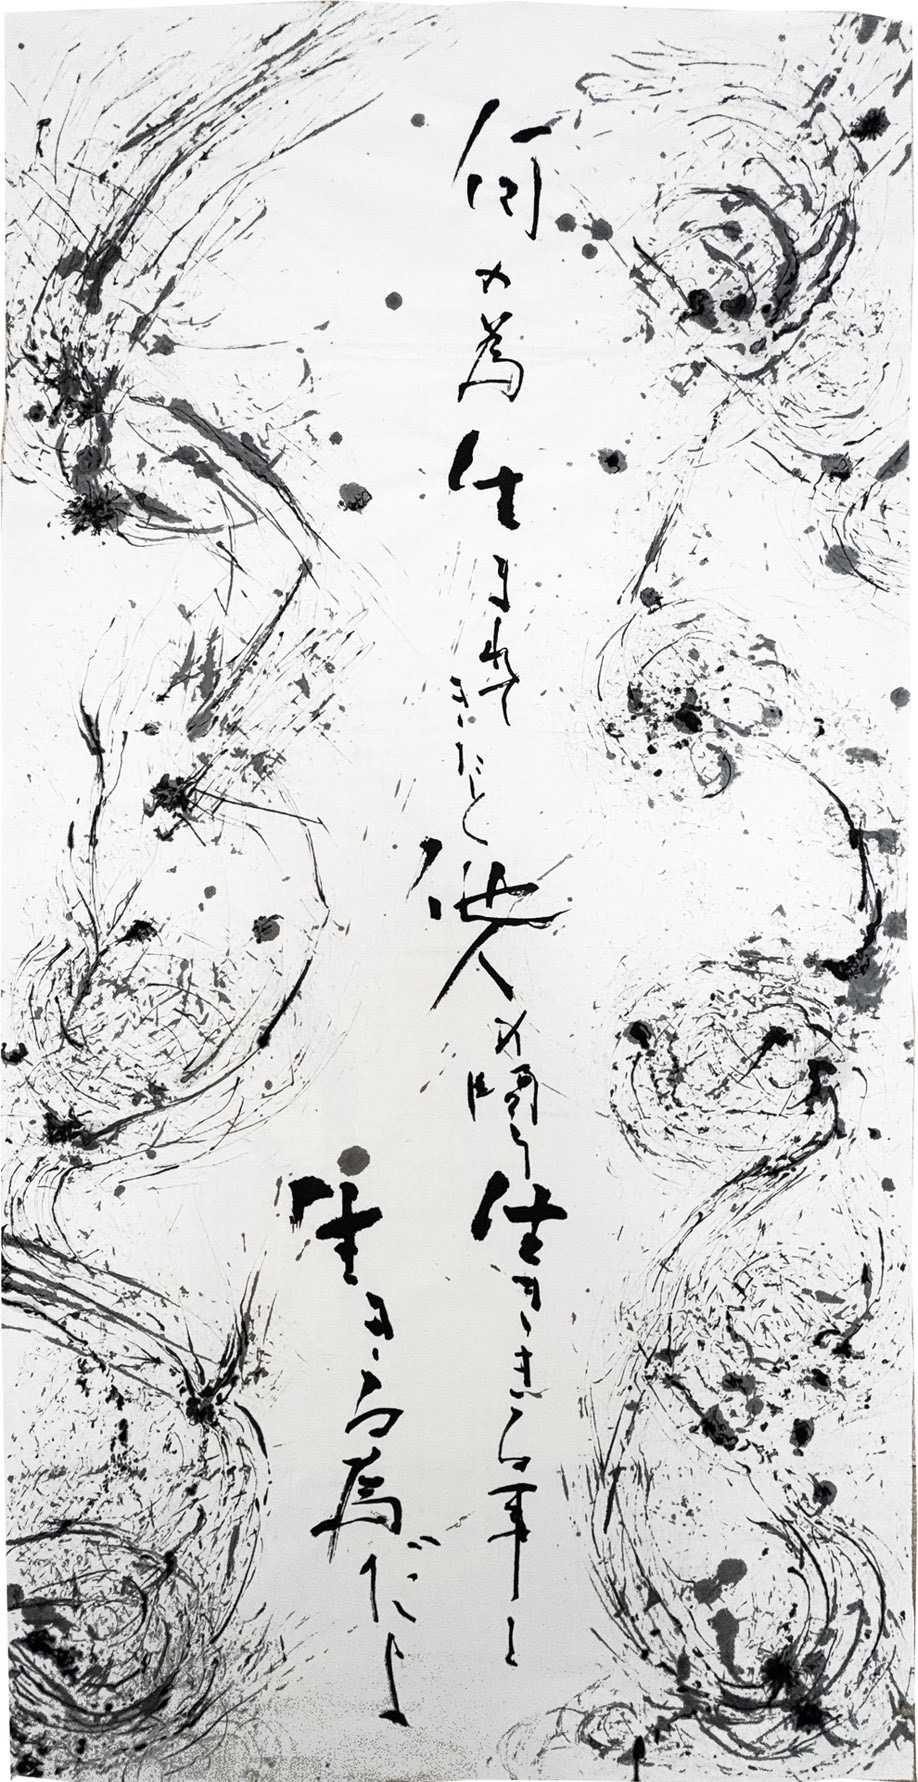 何の為生まれてきたと他人の生ききる事と
生きる為だよ